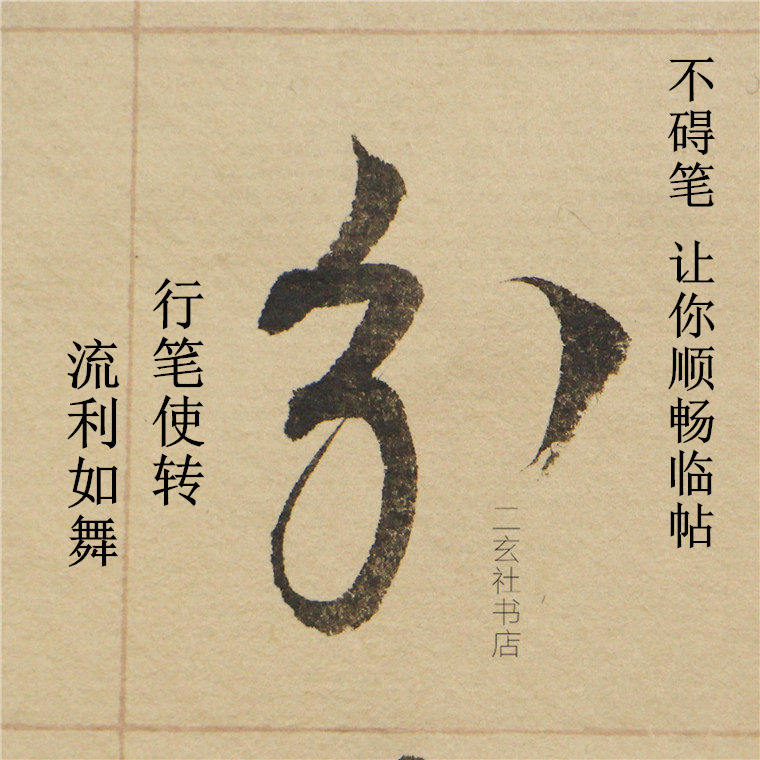 不碍笔 让你顺畅临帖
二玄社书店
行笔使转
流利如舞